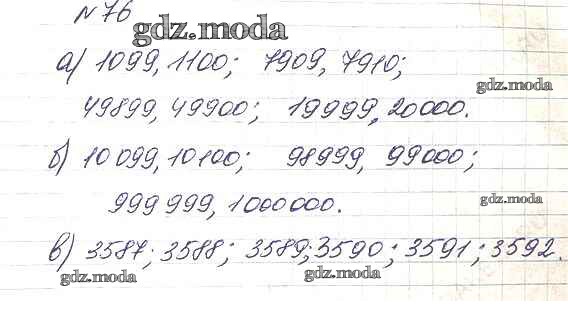 № 76
gdz.moda
а) 1099, 1100; 7909, 7910;
gdz.moda
49899, 49900; 19999, 20000.
б) 10099, 10100; 98999, 99000;
999 999, 1000000.
gdz.moda
в) 3587; 3588; 3589; 3590; 3591; 3592.
gdz.moda gdz.moda